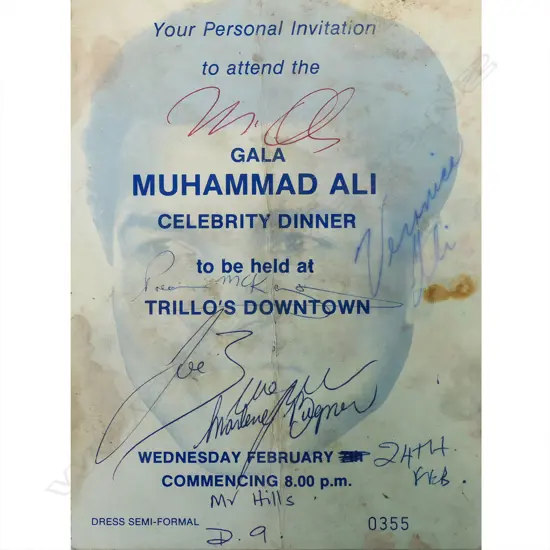 Your Personal Invitation
to attend the
M. Ali
GALA
MUHAMMAD ALI
CELEBRITY DINNER
Veronica
Ali
to be held at
TRILLO'S DOWNTOWN
Joe Bugner
Marlene Bugner
WEDNESDAY FEBRUARY 24TH
FEB.
COMMENCING 8.00 p.m.
Mr Hills
DRESS SEMI-FORMAL
D.9.
0355